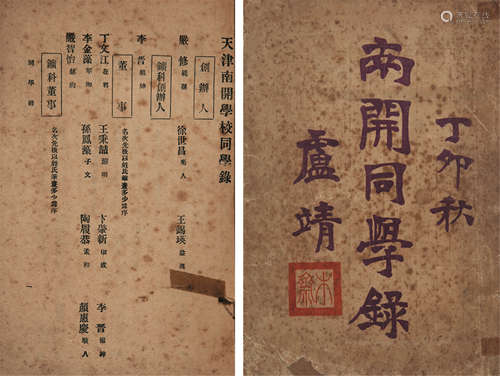 天津南開學校同學錄
創辦人
嚴修範孫
徐世昌菊人
王錫瑛
礦科創辦人
李晉組紳
董事
名次先後以姓氏筆畫多少爲序
丁文江在君
王秉喆
卞肇新俶成
李晉組紳
李金藻琴湘
孫鳳藻子文
陶履恭孟和
顏惠慶駿人
嚴智怡慈約
礦科董事
名次先後以姓氏筆畫多少爲序
同學錄
一
丁卯秋
南開同學錄
盧靖